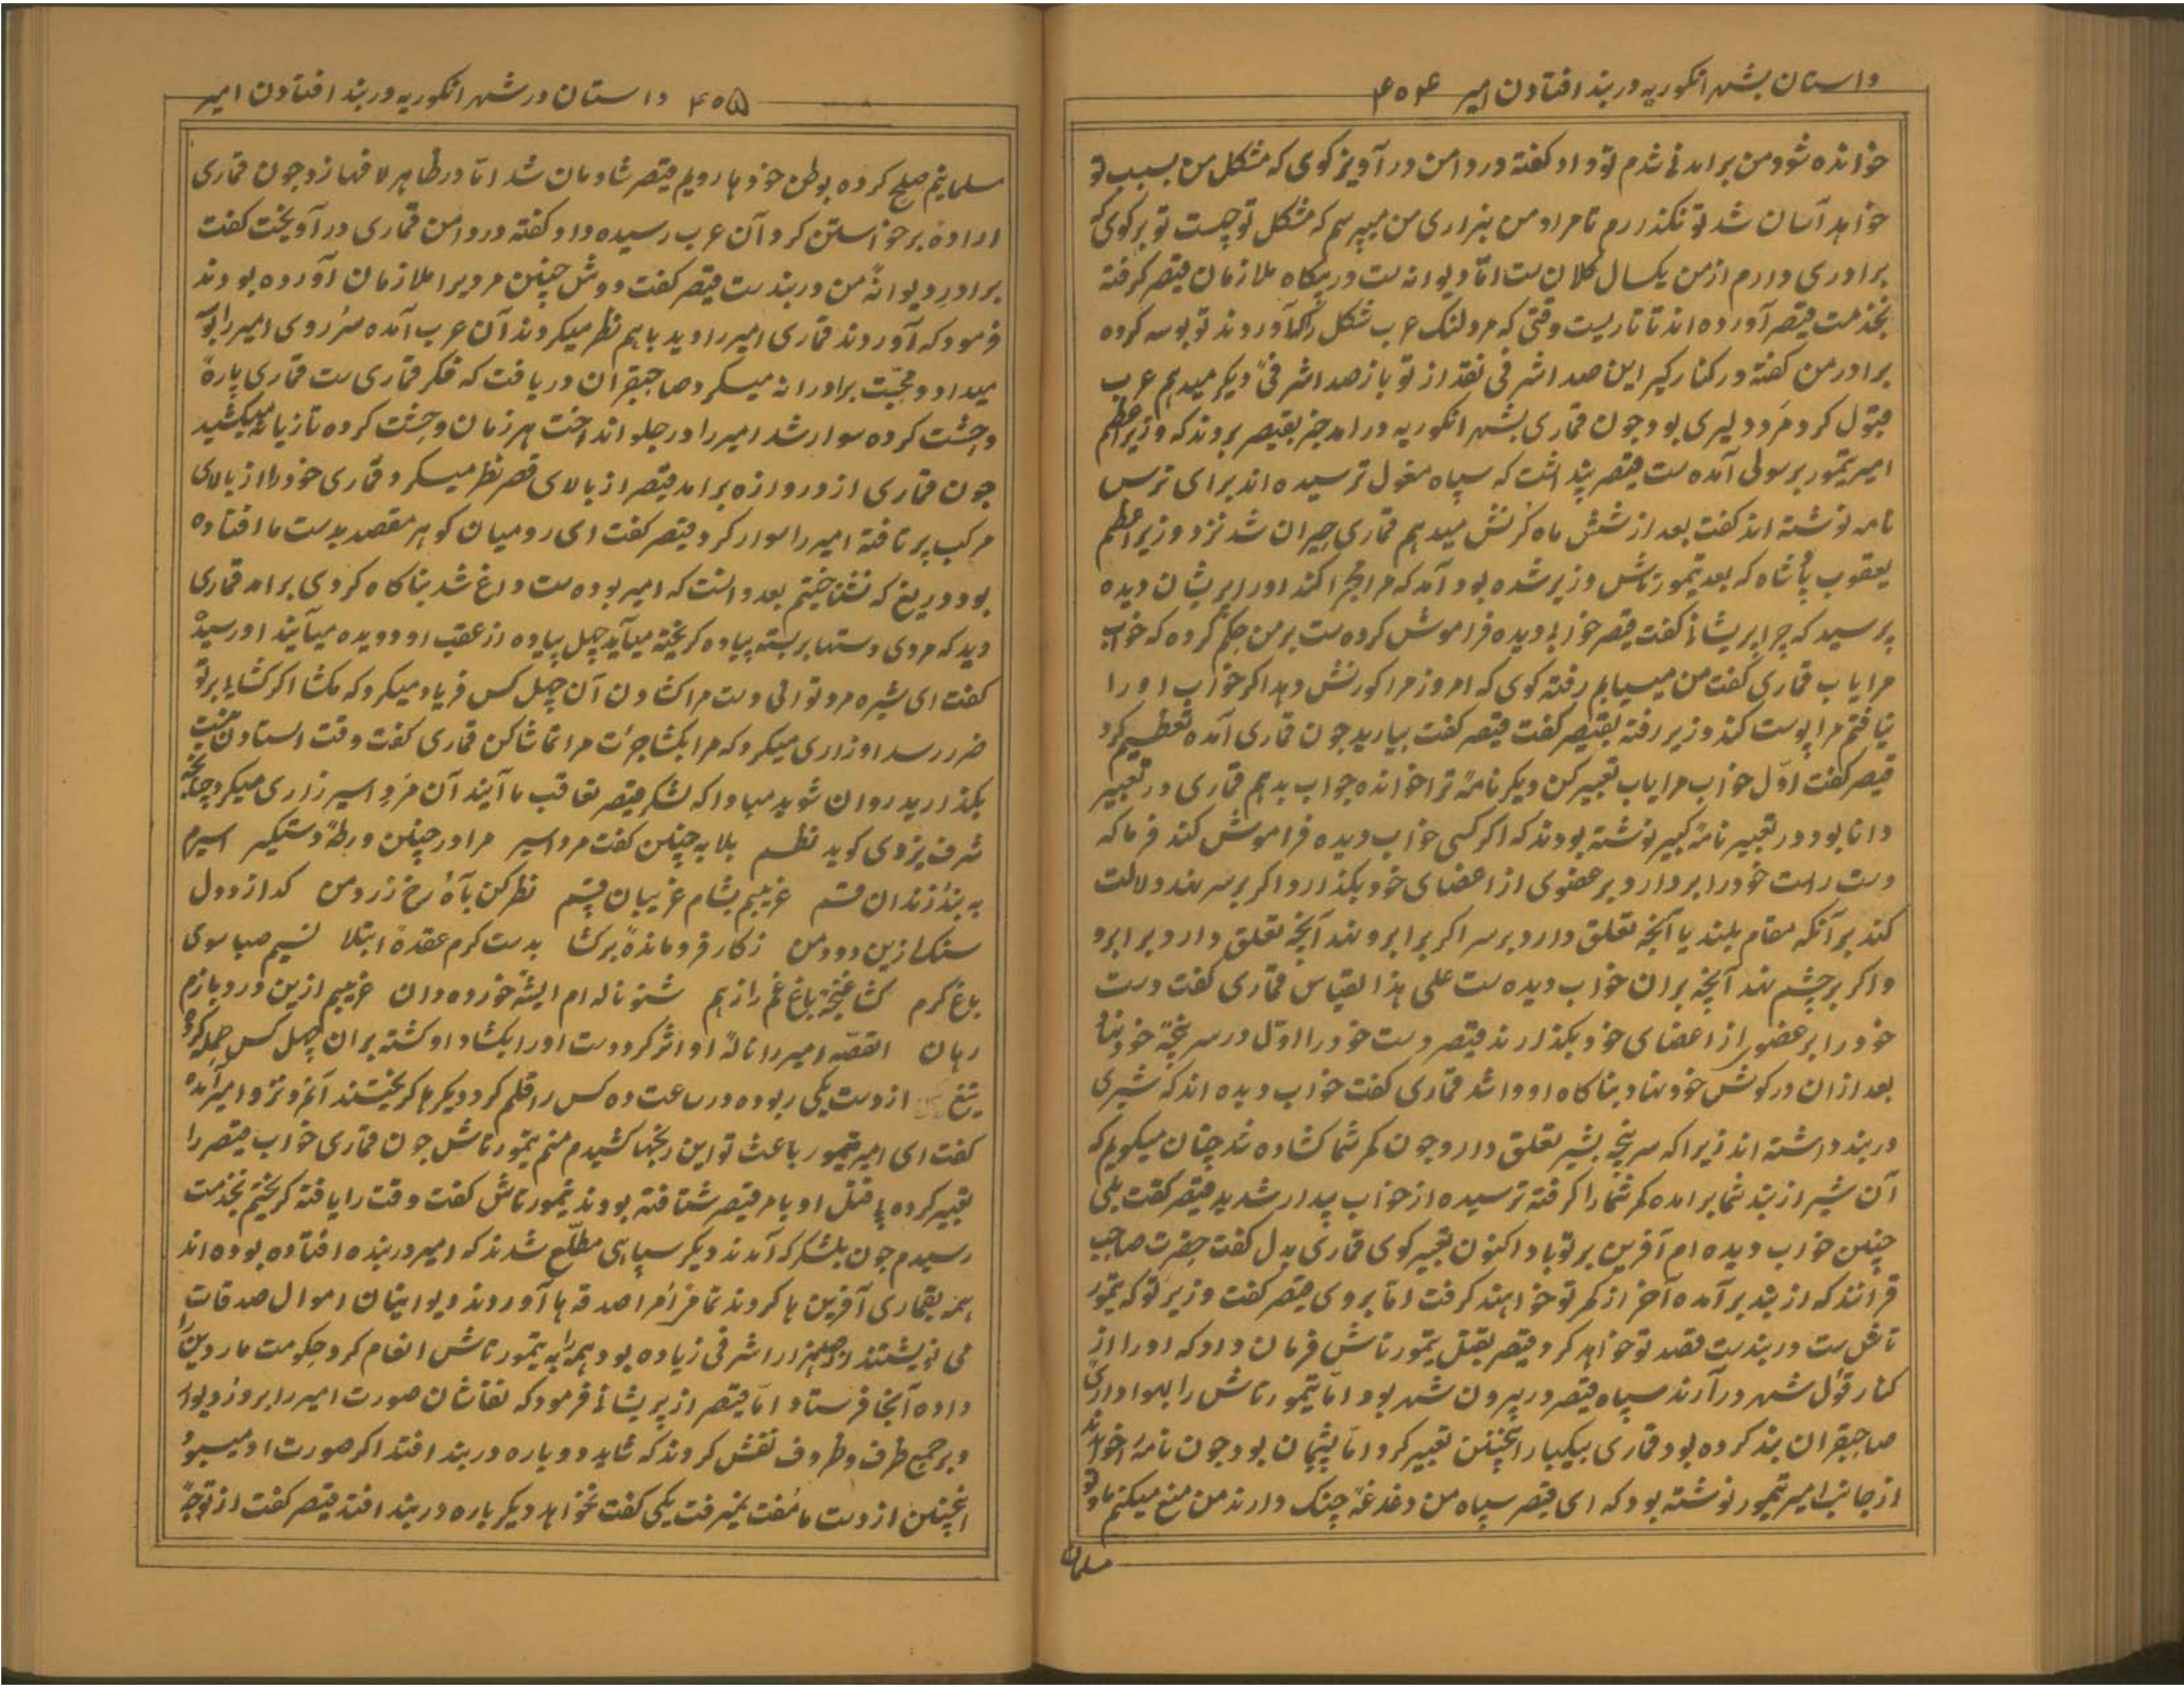 داستان بشهر انکوریه دربند افتادن امیر ۴۰۴
خوانده شود من برامدنی شدم تو داد کفته در دامن در آویز کوی که مشکل من بسبب تو
خواهد آسان شد تو نکذاررم تا مراد من بنزاری من میپرسم که مشکل تو چیست تو برکوی که
برادری دارم از من یکسال کلان ست اما دیوانه ست در پیکاه ملازمان قیصر کرفته
بخذمت قیصر آورده اند تا تاریست وقتی که مرد لنک عرب شکل را آوردند تو بوسه کرده
برادر من کفته در کنار کیر این صد اشرفی نقد از تو باز صد اشرفیٔ دیکر میدهم عرب
قبول کرد مرد دلیری بود چون قماری بشهر انکوریه درامد خبر بقیصر بردند که وزیر اعظم
امیر تیمور برسولی آمده ست قیصر پنداشت که سپاه مغول ترسیده اند برای ترس
نامه نوشته اند کفت بعد از شش ماه کرنش میدهم قماری حیران شد نزد وزیر اعظم
یعقوب پاشاه که بعد تیمورتاش وزیر شده بود آمد که مرا مجرا کند اورا پریشان دیده
پرسید که چرا پریشانی کفت قیصر خوابی دیده فراموش کرده ست بر من حکم کرده که خواب
مرا یاب قماری کفت من میبیابم رفته کوی که امروز مرا کورنش دهد اکر خواب اورا
نیافتم مرا پوست کند وزیر رفته بقیصر کفت قیصر کفت بیارید چون قماری آمده تعظیم کرد
قیصر کفت اوّل خواب مرا یاب تعبیر کن دیکر نامهٔ ترا خوانده جواب بدهم قماری در تعبیر
دانا بود در تعبیر نامهٔ کبیر نوشته بودند که اکر کسی خواب دیده فراموش کند فرما که
دست راست خودرا بردارد بر عضوی از اعضای خود بکذارد و اکر بر سر نهد دلالت
کند بر آنکه مقام بلند یا آنچه تعلق دارد بر سر اکر بر ابرو نهد آنچه تعلق دارد بر ابرو
و اکر بر چشم نهد آنچه بران خواب دیده ست علی هذا القیاس قماری کفت دست
خودرا بر عضوی از اعضای خود بکذارند قیصر دست خودرا اوّل در سر پنجهٔ خود نهاد
بعد ازان در کوش خود نهاد بناکاه او واشد قماری کفت خواب دیده اند که شیری
دربند داشته اند زیرا که سر پنجه بشیر تعلق دارد چون کمر شما کشاده شد چنان میکویم که
آن شیر از بند شما برامده کمر شما را کرفته ترسیده از خواب بیدار شدید قیصر کفت بلی
چنین خواب دیده ام آفرین بر تو باد اکنون تعبیر کوی قماری بدل کفت حضرت صاحب
قرانند که از بند برآمده آخر از کمر تو خواهند کرفت اما بروی قیصر کفت وزیر تو که تیمور
تاش ست دربند ست قصد تو خواهد کرد قیصر بقتل تیمورتاش فرمان داد که اورا از
کنار قول شهر درآرند سپاه قیصر در بیرون شهر بود اما تیمورتاش را بهواداری
صاحبقران بند کرده بود قماری بیکبار اینچنین تعبیر کرد اما پشیمان بود چون نامه را خواندند
از جانب امیر تیمور نوشته بود که ای قیصر سپاه من دغدغهٔ جنک دارند من منع میکنم ما و تو
مسلمان
۴۰۵ داستان در شهر انکوریه دربند افتادن امیر
مسلمانیم صلح کرده بوطن خود ها رویم قیصر شادمان شد اما در ظاهر لافها زد چون قماری
اراده برخواستن کرد آن عرب رسیده داد کفته در دامن قماری در آویخت کفت
برادرِ دیوانهٔ من دربند ست قیصر کفت دوش چنین مردیرا ملازمان آورده بودند
فرمود که آوردند قماری امیر را دید باهم نظر میکردند آن عرب آمده سر و روی امیر را بوسه
میداد و محبّت برادرانه میکرد صاحبقران دریافت که فکر قماری ست قماری پارهٔ
وحشت کرده سوار شد امیر را در جلو انداخت هر زمان وحشت کرده تازیانه میکشید
چون قماری از دروازه برامد قیصر از بالای قصر نظر میکرد قماری خودرا از بالای
مرکب پرتافته امیر را سوار کرد قیصر کفت ای رومیان کوهر مقصد بدست ما افتاده
بود دریغ که نشناختیم بعد دانست که امیر بوده ست داغ شد بناکاه کردی برامد قماری
دید که مردی دستها بربسته پیاده کریخته میآید چهل پیاده از عقب او دویده میآیند او رسیده
کفت ای شیره مرد توانی دست مرا کشادن آن چهل کس فریاد میکرد که مکشا اکر کشایی بر تو
ضرر رسد او زاری میکرد که مرا بکشا جرأت مرا تماشا کن قماری کفت وقت استادن نیست
بکذارید روان شوید مبادا که لشکر قیصر تعاقب ما آیند آن مردِ اسیر زاری میکرد چنانچه
شرف یزدی کوید نظم بلابه چنین کفت مرد اسیر مرا در چنین ورطهٔ دستکیر اسیرم
به بند زندان قسم غریبم بشام غریبان قسم نظر کن بآه رخ زرد من کداز دول
سنک ازین درد من ز کار فرو ماندهٔ برکشا بدست کرم عقدهٔ ابتلا نسیم صبا سوی
باغ کرم کشا غنچهٔ باغ غم را ز هم شنو ناله ام ایشه خورده دان غریبم ازین درد بازم
رهان القصّه امیر را نالهٔ او اثر کرد دست اورا بکشاد او کشته بران چهل کس حمله کرد
تیغ از دست یکی ربوده در ساعت ده کس را قلم کرد دیکرها کریختند آنمرد نزد امیر آمده
کفت ای امیر تیمور باعث تو این رنجها کشیدم منم تیمورتاش چون قماری خواب قیصر را
تعبیر کرده پی قتل او بامر قیصر شتافته بودند تیمورتاش کفت وقت را یافته کریختم بخذمت
رسیدم چون بلشکرکه آمدند دیکر سپاهی مطّلع شدند که امیر دربنده افتاده بوده اند
همه بقماری آفرین ها کردند تمام امرا صدقه ها آوردند دیوانیان اموال صدقات را
می نویشتند از صد هزار اشرفی زیاده بود همه را به تیمورتاش انعام کرد حکومت ماردین
داده آنجا فرستاد امّا قیصر از پریشانی فرمود که نقاشان صورت امیر را بر در و دیوار
و بر جمیع طرف و ظروف نقش کردند که شاید دوباره دربند افتد اکر صورت او میبود
اینچنین از دست ما مُفت نمیرفت یکی کفت نخواهد دیکر باره دربند افتد قیصر کفت از توجّه